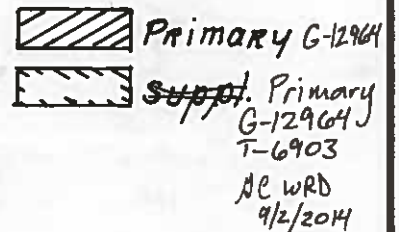 Primary G-12964
Suppl. Primary
G-12964
T-6903
WRD
9/2/2014